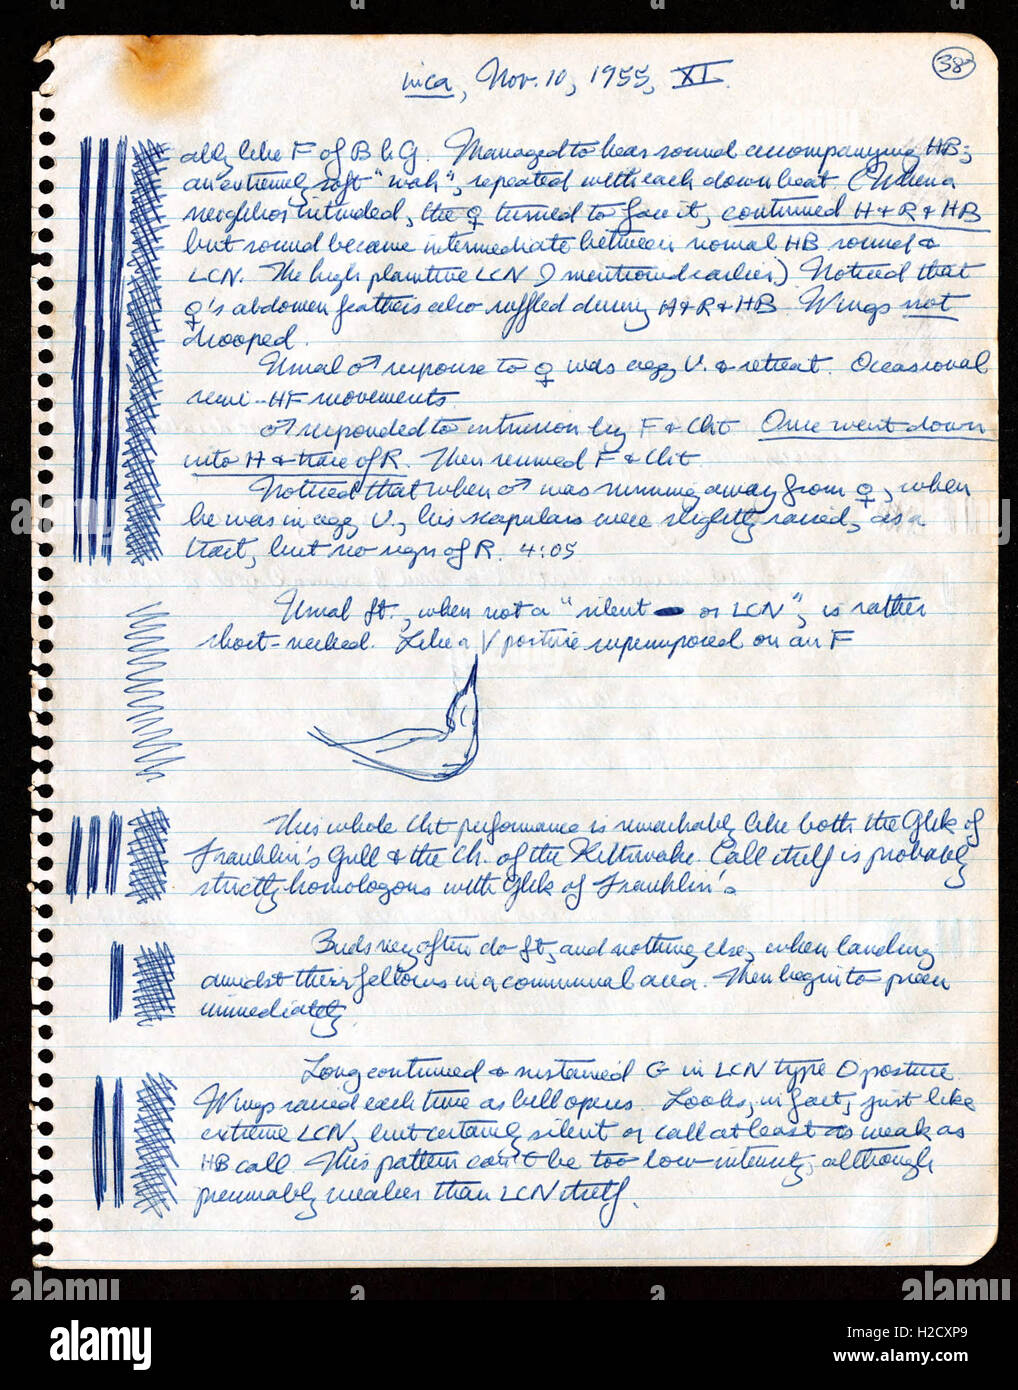 38
inca, Nov. 10, 1955, XI.
ably like F of B h G. Managed to hear sound accompanying HB;
an extremely soft "wah", repeated with each down beat. (When a
neighbor intruded, the ♀ turned to face it, continued H & R & HB
but sound became intermediate between normal HB sound &
LCN. The high plaintive LCN I mentioned earlier) Noticed that
♀'s abdomen feathers also ruffled during H & R & HB. Wings not
drooped.
Usual ♂ response to ♀ was agg U. & retreat. Occasional
semi-HF movements.
♂ responded to intrusion by F & Chit. Once went down
into H & trace of R. Then resumed F & Chit.
Noticed that when ♂ was running away from ♀, when
he was in agg U., his scapulars were slightly raised, as a
tract, but no sign of R. 4:05
Usual ft., when not a "silent or LCN", is rather
short-necked. Like a V posture superimposed on an F
This whole Chit performance is remarkably like both the Glek of
Franklin's Gull & the Ch. of the Kittiwake. Call itself is probably
strictly homologous with Glek of Franklin's.
Birds very often do ft, and nothing else, when landing
amidst their fellows in a communal area. Then begin to preen
immediately.
Long continued & sustained G in LCN type O posture.
Wings raised each time as bill opens. Looks, in fact, just like
extreme LCN, but certainly silent or call at least as weak as
HB call. This pattern can't be too low intensity, although
presumably weaker than LCN itself.
alamy
alamy
Image ID: H2CXP9
www.alamy.com